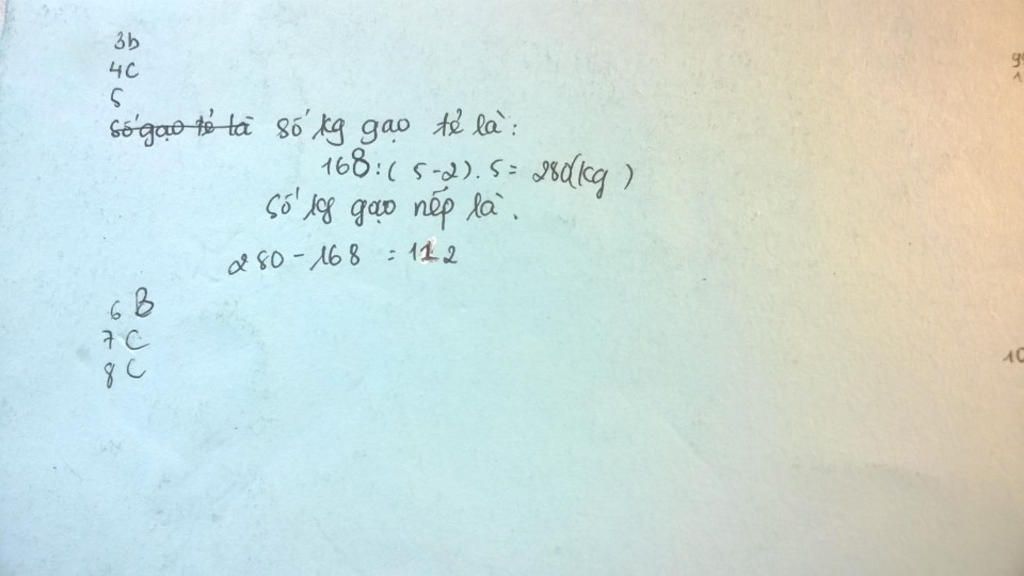 3b
4C
5
số gạo tẻ là số kg gạo tẻ là:
168:( 5-2). 5= 280(kg )
Số kg gạo nếp là.
280-168 = 112
6 B
7 C
8 C
10